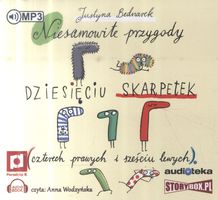 MP3
Justyna Bednarek
Niesamowite przygody
DZIESIĘCIU SKARPETEK
(czterech prawych i sześciu lewych).
czyta: Anna Wodzyńska
audioteka
STORYBOX.PL